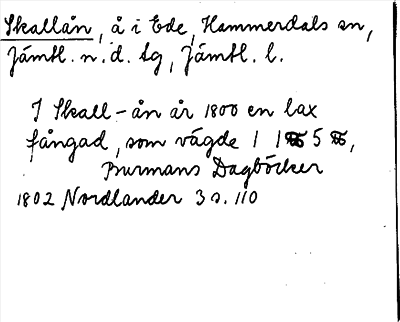 Skallån, å i Ede, Hammerdals sn,
Jämtl. n. d. tg, Jämtl. l.
I Skall-ån år 1800 en lax
fångad, som vägde 1 1 5
Burmans Dagböcker
1802 Nordlander 3 s. 110